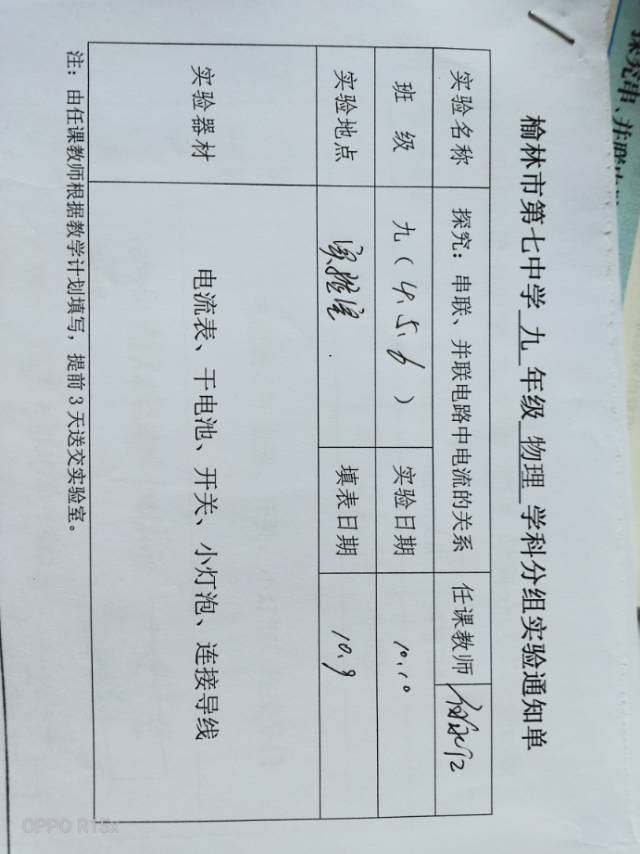 榆林市第七中学 九 年级 物理 学科分组实验通知单
实验名称 探究：串联、并联电路中电流的关系 任课教师
班 级 九（4.5.6） 实验日期 10.10
实验地点 实验室 填表日期 10.9
实验器材 电流表、干电池、开关、小灯泡、连接导线
注：由任课教师根据教学计划填写，提前3天送交实验室。
OPPO R15x